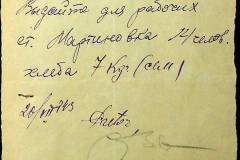 Выдайте для рабочих
ст. Мартиновка 14 челов.
хлеба 7 кгр. (сим)
20/VII 943